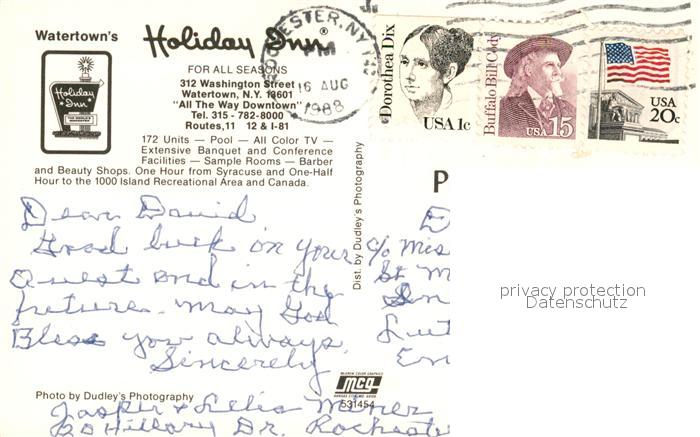 Watertown's
Holiday Inn®
FOR ALL SEASONS
312 Washington Street
Watertown, N.Y. 13601
"All The Way Downtown"
Tel. 315 - 782-8000
Routes, 11 12 & I-81
172 Units — Pool — All Color TV —
Extensive Banquet and Conference
Facilities — Sample Rooms — Barber
and Beauty Shops. One Hour from Syracuse and One-Half
Hour to the 1000 Island Recreational Area and Canada.
Holiday
Inn
ROCHESTER, NY
PM
16 AUG
1988
Dorothea Dix
USA 1c
Buffalo Bill Cody
USA 15
USA
20c
Dear David
Good luck on your
Quest and in the
future. May God
Bless you always.
Sincerely
Dist. by Dudley's Photography
P
c/o Mis
St M
privacy protection
Datenschutz
Photo by Dudley's Photography
McGREW COLOR GRAPHICS
mcg
KANSAS CITY, MO. 64108
531454
Jasper &
20 Hillary Dr. Rocheste